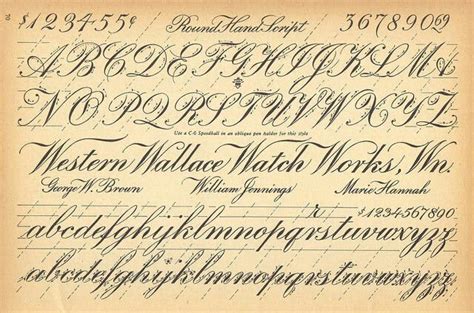 $123455¢ Round Hand Script 367890 69
ABCDEFGHIJKLM
NOPQRSTUVWXYZ
Use a C-6 Speedball in an oblique pen holder for this style
Western Wallace Watch Works, Wn.
George W. Brown William Jennings Marie Hannah
r $1234567890
abcdefghijklmnopqrstuvwxyzz
abcdefghijklmnopqrstuvwxyzz